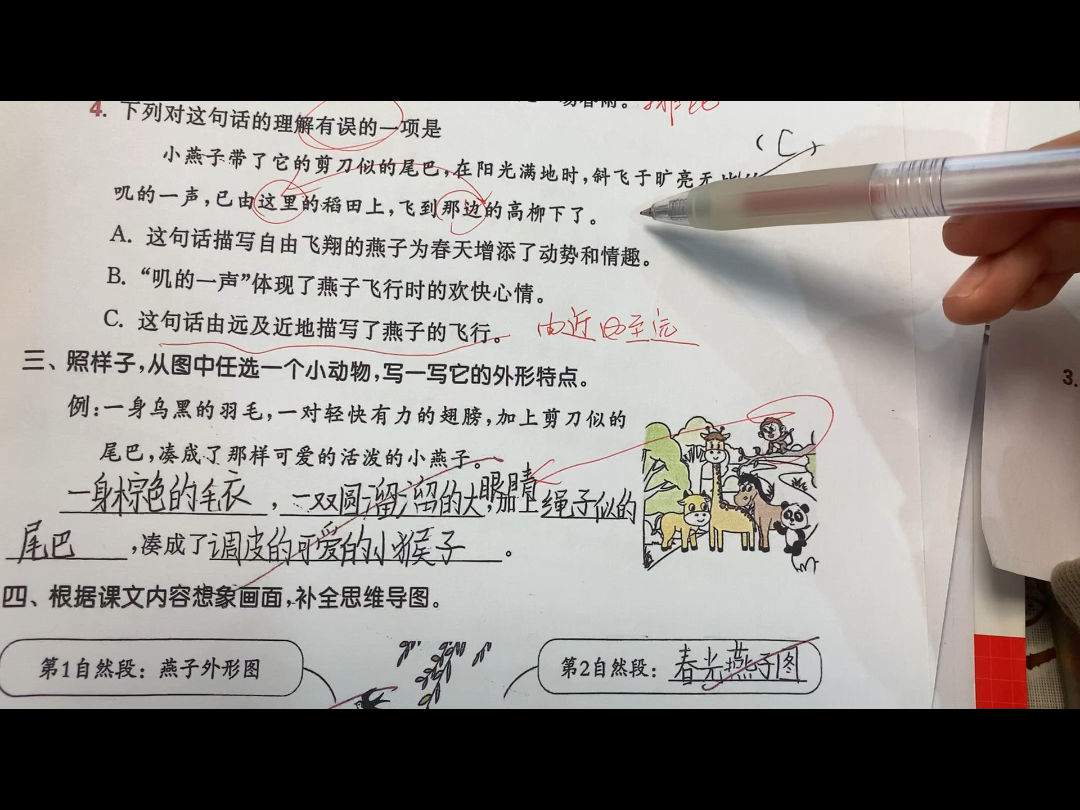 春雨。
4. 下列对这句话的理解有误的一项是
(C)
小燕子带了它的剪刀似的尾巴,在阳光满地时,斜飞于旷亮无比的
叽的一声,已由这里的稻田上,飞到那边的高柳下了。
A. 这句话描写自由飞翔的燕子为春天增添了动势和情趣。
B. “叽的一声”体现了燕子飞行时的欢快心情。
C. 这句话由远及近地描写了燕子的飞行。 由近至远
三、照样子,从图中任选一个小动物,写一写它的外形特点。
例:一身乌黑的羽毛,一对轻快有力的翅膀,加上剪刀似的
尾巴,凑成了那样可爱的活泼的小燕子。
一身棕色的毛衣,一双圆溜溜的大眼睛,加上绳子似的
尾巴,凑成了调皮的可爱的小猴子。
四、根据课文内容想象画面,补全思维导图。
第1自然段:燕子外形图
第2自然段:春光燕子图
3.